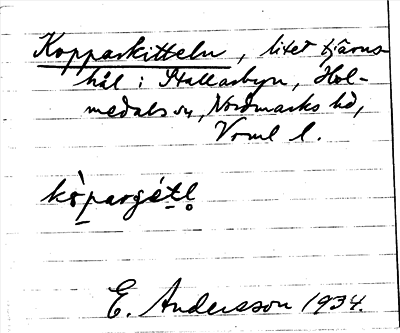 Kopparkitteln, litet tjärns-
hål i Stallarbyn, Hol-
medals sn, Nordmarks hd,
Vrml l.
kòpargétl̥
E. Andersson 1934.